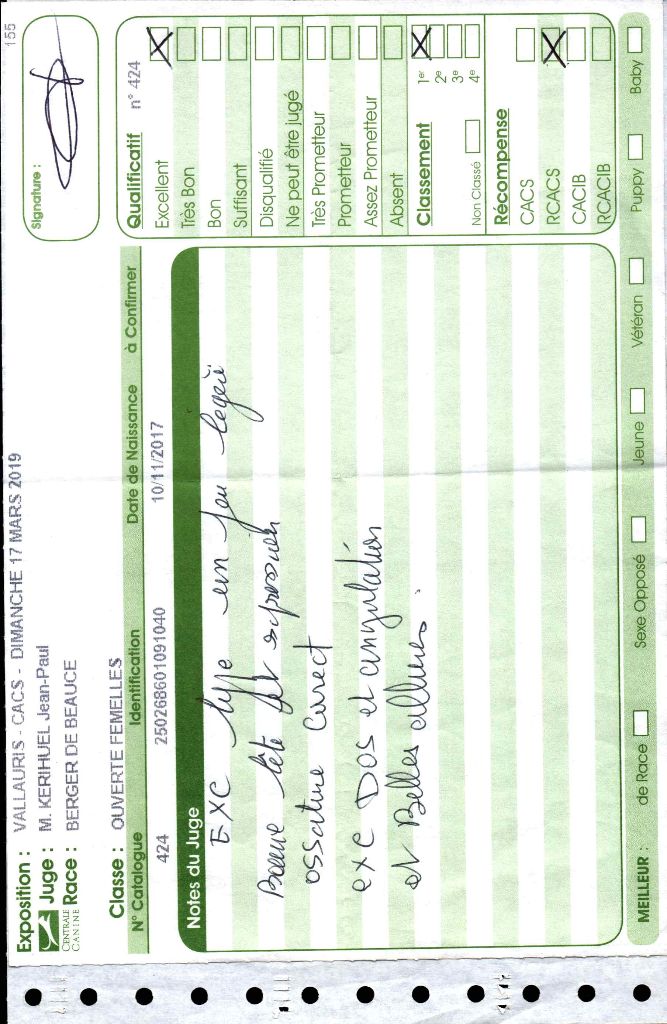 155
Exposition : VALLAURIS - CACS - DIMANCHE 17 MARS 2019
Juge : M. KERIHUEL Jean-Paul
Race : BERGER DE BEAUCE
CENTRALE
CANINE
Classe : OUVERTE FEMELLES
Signature :
N° Catalogue Identification Date de Naissance à Confirmer
424 250268601091040 10/11/2017
Notes du Juge
EXC type un peu
Bonne tête et expression
ossature Correct
exc DOS et angulation
et Belles allures.
Qualificatif n° 424
Excellent
Très Bon
Bon
Suffisant
Disqualifié
Ne peut être jugé
Très Prometteur
Prometteur
Assez Prometteur
Absent
Classement
1er
2e
3e
4e
Non Classé
Récompense
CACS
RCACS
CACIB
RCACIB
MEILLEUR : de Race Sexe Opposé Jeune Vétéran Puppy Baby